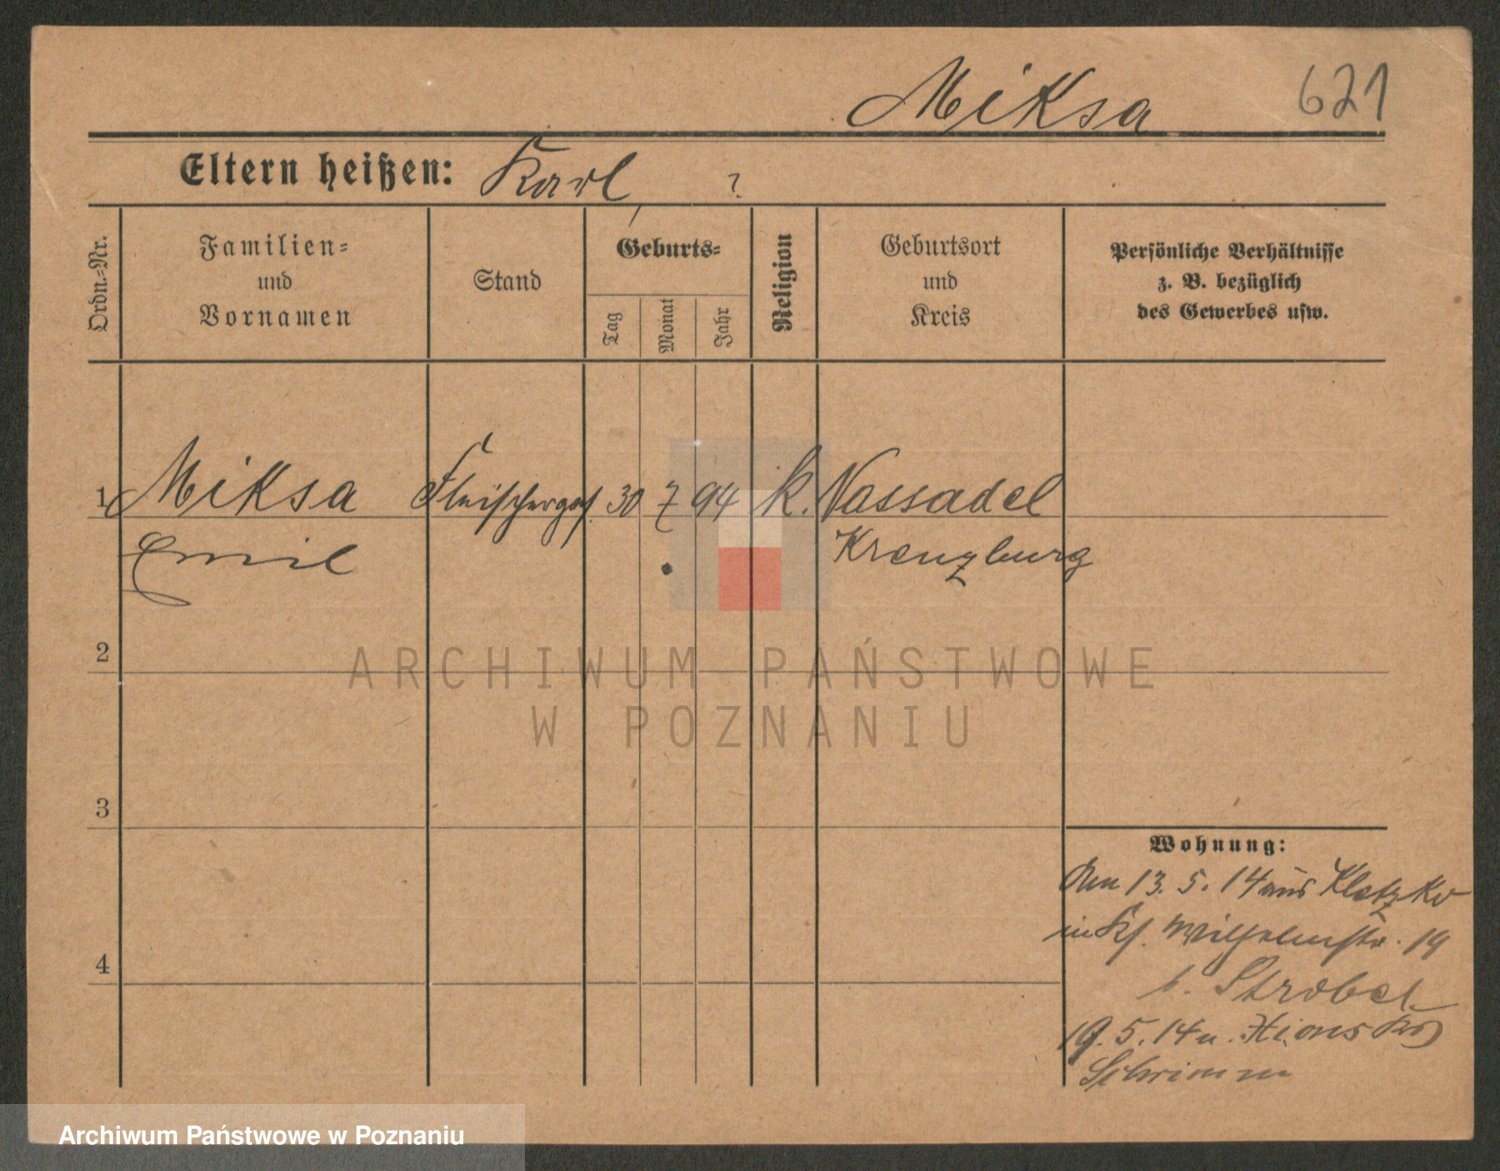 Miksa 621
Eltern heißen: Karl, ?
Ordn.-Nr.
Familien-
und
Vornamen
Stand
Geburts-
Tag
Monat
Jahr
Religion
Geburtsort
und
Kreis
Persönliche Verhältnisse
z. B. bezüglich
des Gewerbes usw.
1 Miksa Fleischerges. 30 7 94 k. Nassadel
Emil Kreuzburg
2
ARCHIWUM PAŃSTWOWE
W POZNANIU
3
Wohnung:
13. 5. 14 aus Kletzko
Wilhelmstr. 19
4
b. Strobel
19. 5. 14 n. Kr
Schrimm
Archiwum Państwowe w Poznaniu